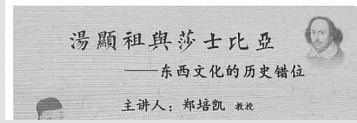 湯顯祖與莎士比亞
——东西文化的历史错位
主讲人：郑培凯 教授